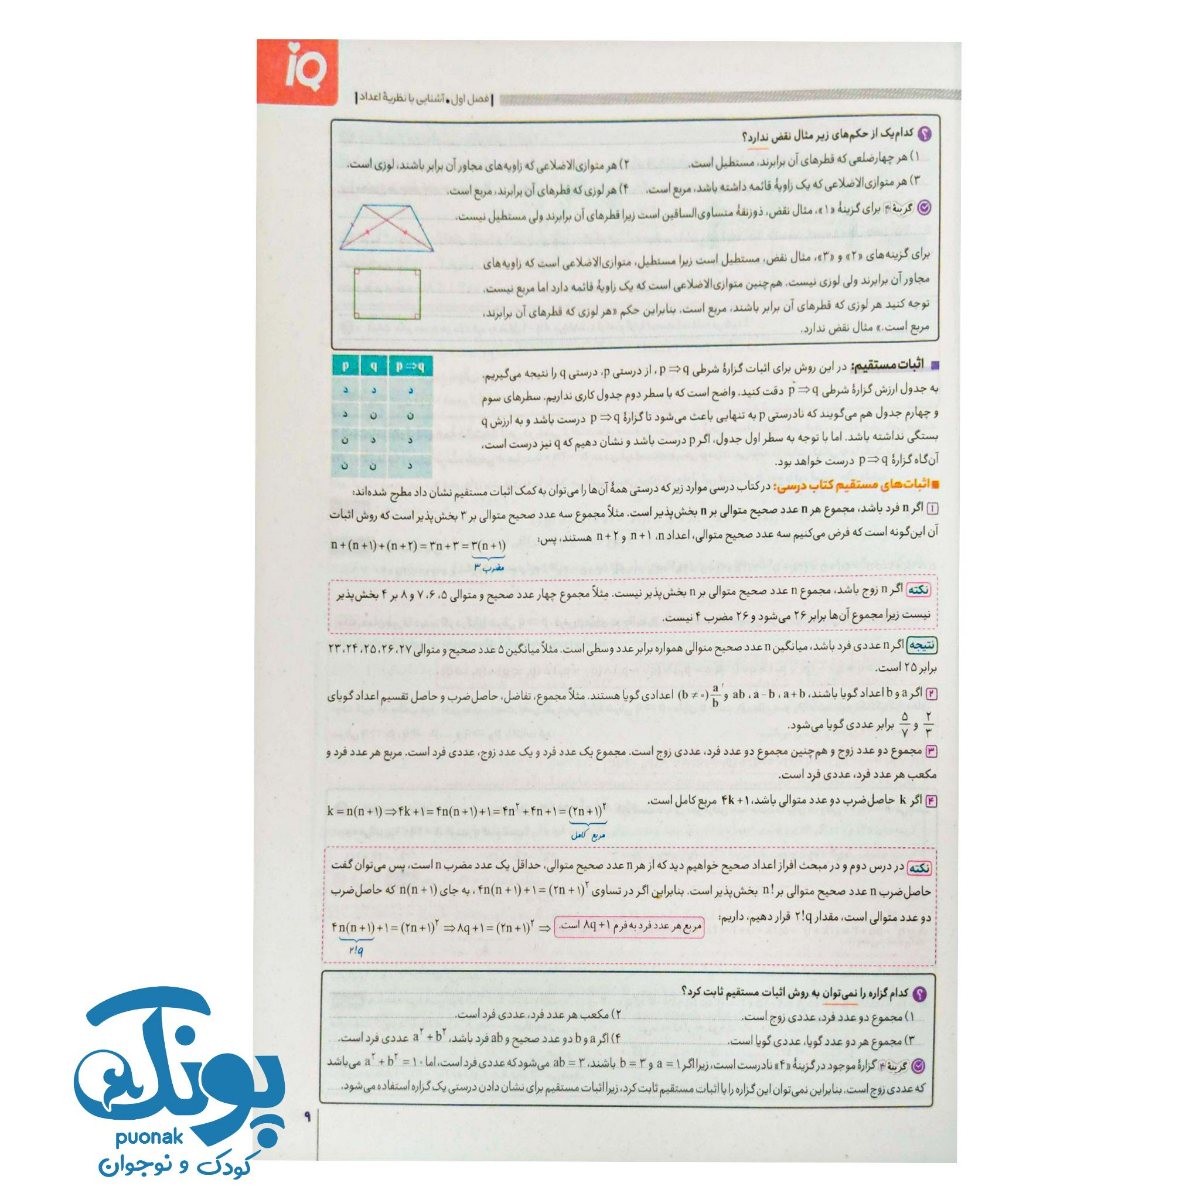 iQ
فصل اول • آشنایی با نظریهٔ اعداد
کدام‌یک از حکم‌های زیر مثال نقض ندارد؟
۱) هر چهارضلعی که قطرهای آن برابرند، مستطیل است. ۲) هر متوازی‌الاضلاعی که زاویه‌های مجاور آن برابر باشند، لوزی است.
۳) هر متوازی‌الاضلاعی که یک زاویهٔ قائمه داشته باشد، مربع است. ۴) هر لوزی که قطرهای آن برابرند، مربع است.
گزینهٔ ۴ برای گزینهٔ «۱»، مثال نقض، ذوزنقهٔ متساوی‌الساقین است زیرا قطرهای آن برابرند ولی مستطیل نیست.
برای گزینه‌های «۲» و «۳»، مثال نقض، مستطیل است زیرا مستطیل، متوازی‌الاضلاعی است که زاویه‌های
مجاور آن برابرند ولی لوزی نیست. هم‌چنین متوازی‌الاضلاعی است که یک زاویهٔ قائمه دارد اما مربع نیست.
توجه کنید هر لوزی که قطرهای آن برابر باشند، مربع است. بنابراین حکم «هر لوزی که قطرهای آن برابرند،
مربع است.» مثال نقض ندارد.
اثبات مستقیم: در این روش برای اثبات گزارهٔ شرطی p ⇒ q، از درستی p، درستی q را نتیجه می‌گیریم.
به جدول ارزش گزارهٔ شرطی p ⇒ q دقت کنید. واضح است که با سطر دوم جدول کاری نداریم. سطرهای سوم
و چهارم جدول هم می‌گویند که نادرستی p به تنهایی باعث می‌شود تا گزارهٔ p ⇒ q درست باشد و به ارزش q
بستگی نداشته باشد. اما با توجه به سطر اول جدول، اگر p درست باشد و نشان دهیم که q نیز درست است،
آن‌گاه گزارهٔ p ⇒ q درست خواهد بود.
p q p ⇒ q
د د د
د ن ن
ن د د
ن ن د
اثبات‌های مستقیم کتاب درسی: در کتاب درسی موارد زیر که درستی همهٔ آن‌ها را می‌توان به کمک اثبات مستقیم نشان داد مطرح شده‌اند:
۱ اگر n فرد باشد، مجموع هر n عدد صحیح متوالی بر n بخش‌پذیر است. مثلاً مجموع سه عدد صحیح متوالی بر ۳ بخش‌پذیر است که روش اثبات
آن این‌گونه است که فرض می‌کنیم سه عدد صحیح متوالی، اعداد n، n+۱ و n+۲ هستند، پس: n+(n+۱)+(n+۲)=۳n+۳=۳(n+۱)
مضرب ۳
نکته اگر n زوج باشد، مجموع n عدد صحیح متوالی بر n بخش‌پذیر نیست. مثلاً مجموع چهار عدد صحیح و متوالی ۵، ۶، ۷ و ۸ بر ۴ بخش‌پذیر
نیست زیرا مجموع آن‌ها برابر ۲۶ می‌شود و ۲۶ مضرب ۴ نیست.
نتیجه اگر n عددی فرد باشد، میانگین n عدد صحیح متوالی همواره برابر عدد وسطی است. مثلاً میانگین ۵ عدد صحیح و متوالی ۲۳، ۲۴، ۲۵، ۲۶، ۲۷
برابر ۲۵ است.
۲ اگر a و b اعداد گویا باشند، a+b، a−b، ab و a/b (b≠۰) اعدادی گویا هستند. مثلاً مجموع، تفاضل، حاصل‌ضرب و حاصل تقسیم اعداد گویای
۲/۳ و ۵/۷ برابر عددی گویا می‌شود.
۳ مجموع دو عدد زوج و هم‌چنین مجموع دو عدد فرد، عددی زوج است. مجموع یک عدد فرد و یک عدد زوج، عددی فرد است. مربع هر عدد فرد و
مکعب هر عدد فرد، عددی فرد است.
۴ اگر k حاصل‌ضرب دو عدد متوالی باشد، ۴k+۱ مربع کامل است. k=n(n+۱)⇒۴k+۱=۴n(n+۱)+۱=۴n²+۴n+۱=(۲n+۱)²
مربع کامل
نکته در درس دوم و در مبحث افراز اعداد صحیح خواهیم دید که از هر n عدد صحیح متوالی، حداقل یک عدد مضرب n است، پس می‌توان گفت
حاصل‌ضرب n عدد صحیح متوالی بر n! بخش‌پذیر است. بنابراین اگر در تساوی ۴n(n+۱)+۱=(۲n+۱)²، به جای n(n+۱) که حاصل‌ضرب
دو عدد متوالی است، مقدار ۲!q قرار دهیم، داریم: ۴n(n+۱)+۱=(۲n+۱)²⇒۸q+۱=(۲n+۱)²⇒ مربع هر عدد فرد به فرم ۸q+۱ است.
۲!q
کدام گزاره را نمی‌توان به روش اثبات مستقیم ثابت کرد؟
۱) مجموع دو عدد فرد، عددی زوج است. ۲) مکعب هر عدد فرد، عددی فرد است.
۳) مجموع هر دو عدد گویا، عددی گویا است. ۴) اگر a و b دو عدد صحیح و ab فرد باشد، a²+b² عددی فرد است.
گزینهٔ ۴ گزارهٔ موجود در گزینهٔ «۴» نادرست است، زیرا اگر a=۱ و b=۳ باشند، ab=۳ می‌شود که عددی فرد است، اما a²+b²=۱۰ می‌باشد
که عددی زوج است. بنابراین نمی‌توان این گزاره را با اثبات مستقیم ثابت کرد، زیرا اثبات مستقیم برای نشان دادن درستی یک گزاره استفاده می‌شود.
۹
پونک
puonak
کودک و نوجوان